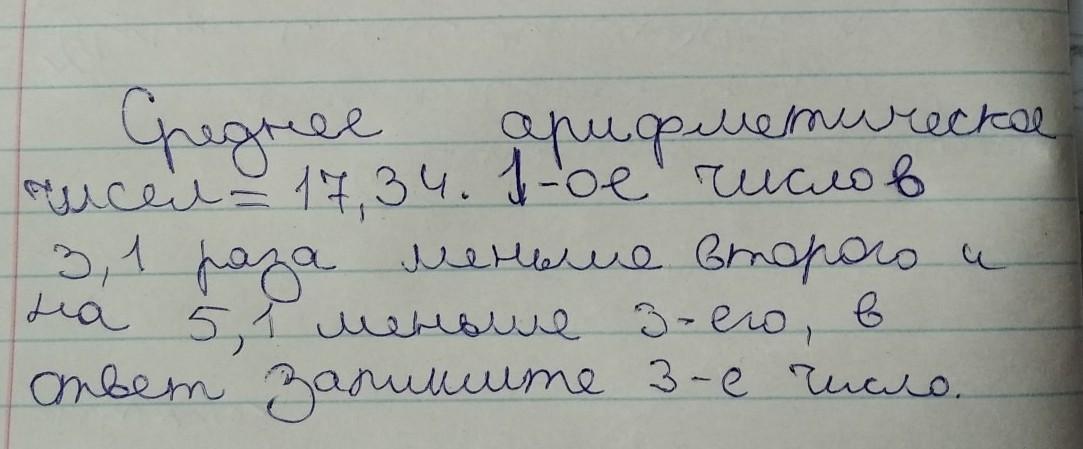 Среднее арифметическое
чисел = 17,34. 1-ое число в
3,1 раза меньше второго и
на 5,1 меньше 3-его, в
ответ запишите 3-е число.